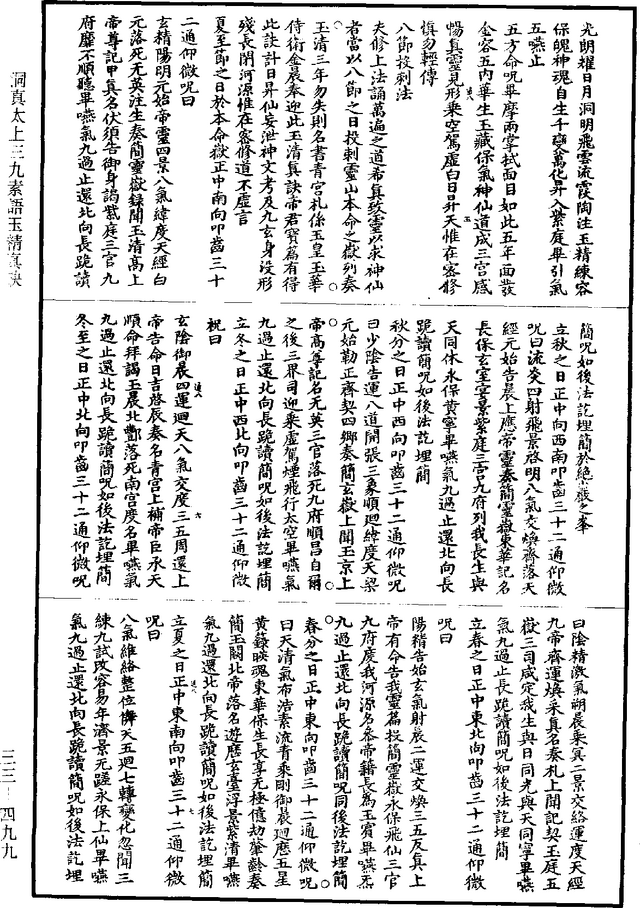 光朗耀日月洞明飛雲流霞陶注玉精練容
保魄神魂自生千變萬化昇入紫庭畢引氣
五嚥止
五方命呪畢摩兩掌拭面目如此五年面發
金容五内華生玉藏保氣神仙道成三宮感
暢真靈見形乗空駕虚白日昇天惟在密修
慎勿輕傳
八節投刺法
夫修上法誦萬遍之道希真致靈以求神仙
者當以八節之日投刺靈山本命之嶽列奏
玉清三年勿失則名書青宮札係玉皇玉華
侍衛金晨奉迎此玉清真訣帝君寶篇有得
此訣計日昇仙妄泄神文考及九玄身没形
殘長閉河源惟在密修道不虚言
夏至節之日於本命嶽正中南向叩齒三十
二通仰微呪曰
玄精陽明元始帝靈四景八氣緯度天經白
元落死无英注生奏簡靈嶽録聞玉清高上
帝尊記甲真名伏須告御身謁紫庭三官九
府靡不順聽畢嚥氣九過止還北向長跪讀
簡呪如後法訖埋簡於絶巖之峯
立秋之日正中向西南叩齒三十二通仰微
呪曰流炎四射飛景啓明八氣交煥齊落天
經元始告晨上應帝靈奏簡靈嶽東華記名
長保玄室宴景紫庭三官九府列我長生與
天同休永保黄寧畢嚥氣九過止還北向長
跪讀簡呪如後法訖埋簡
秋分之日正中西向叩齒三十二通仰微呪
曰少陰告運八道開張三象順迴緯度天梁
元始勒正齊契四鄉奏簡玄嶽上聞玉京上
帝高尊記名无英三官落死九府順昌自爾
之後三界司迎乗虚駕煙飛行太空畢嚥氣
九過止還北向長跪讀簡呪如後法訖埋簡
立冬之日正中西北向叩齒三十二通仰微
祝曰
玄陰御晨四運迴天八氣交度三五周還上
帝告命日吉啓辰奏名青宮上補帝臣承天
順命拜謁玉晨北酆落死南宮度名畢嚥氣
九過止還北向長跪讀簡呪如後法訖埋簡
冬至之日正中北向叩齒三十二通仰微呪
曰陰精激氣朔晨乗冥二景交絡運度天經
九帝齊運煥采真名奏札上聞記契玉庭五
嶽三司咸定我生與日同光與天同寧畢嚥
氣九過止長跪讀簡呪如後法訖埋簡
立春之日正中東北向叩齒三十二通仰微
呪曰
陽精告始玄氣射晨二運交煥三五反真上
帝有命告我靈篇投簡靈嶽永保飛仙三官
九府度我河源名參帝籍長爲玉賓畢嚥炁
九過止還北向長跪讀簡呪同後法訖埋簡
春分之日正中東向叩齒三十二通仰微呪
曰天清氣布浩素流青乗則御晨迴歷五星
黄籙映魂東華保生長享无極億劫華齡奏
簡玉闕北帝落名遊歷玄臺浮景紫清畢嚥
氣九過還北向長跪讀簡呪如後法訖埋簡
立夏之日正中東南向叩齒三十二通仰微
呪曰
八氣維絡整位憐天五迴七轉變化忽閒三
練九試改容易年濟景元蹉永保上仙畢嚥
氣九過止還北向長跪讀簡呪如後法訖埋
洞真太上三九素語玉精真訣
三三—四九九